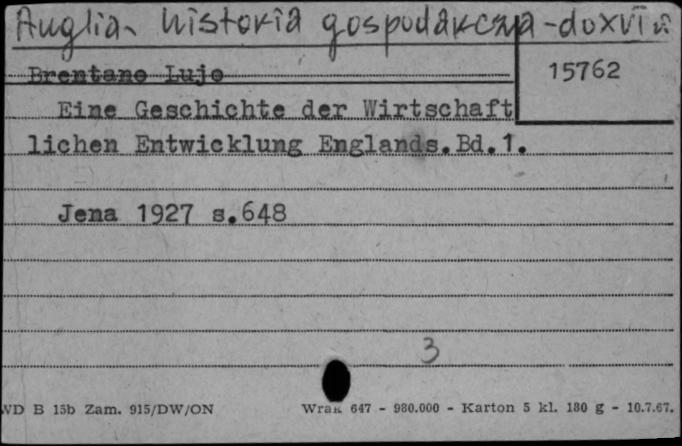 Anglia - historia gospodarcza - do XVI w
Brentano Lujo
15762
Eine Geschichte der Wirtschaft
lichen Entwicklung Englands.Bd.1.
Jena 1927 s.648
3
WD B 15b Zam. 915/DW/ON Wrak 647 - 980.000 - Karton 5 kl. 180 g - 10.7.67.